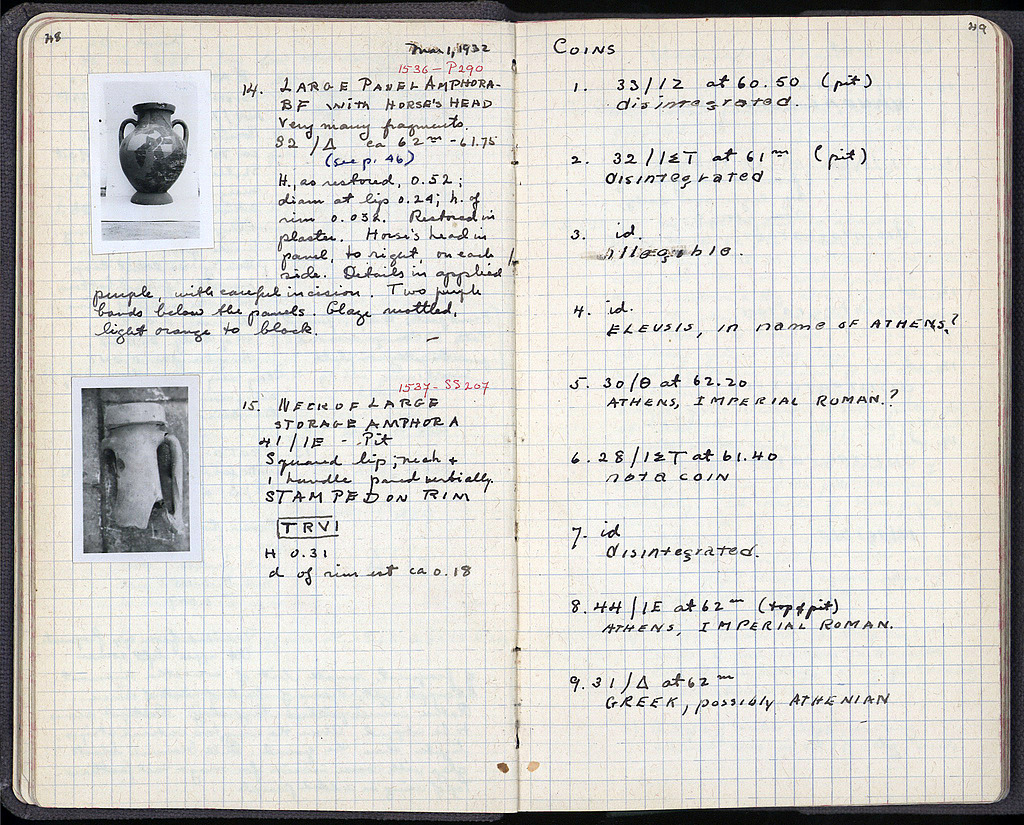 48
Mar 1, 1932
1536 - P290
14. LARGE PANEL AMPHORA-
BF WITH HORSE'S HEAD
Very many fragments.
32 / Δ ca 62m - 61.75
(see p. 46)
H., as restored, 0.52;
diam at lip 0.24; h. of
rim 0.032. Restored in
plaster. Horse's head in
panel, to right, on each
side. Details in applied
purple, with careful incision. Two purple
bands below the panels. Glaze mottled,
light orange to black.
1537 - SS207
15. NECK OF LARGE
STORAGE AMPHORA
41 / ΙΕ - Pit
Squared lip; neck +
1 handle pared vertically.
STAMPED ON RIM
TRVI
H 0.31
d of rim est ca 0.18
49
COINS
1. 33/ΙΖ at 60.50 (pit)
disintegrated.
2. 32/ΙΣΤ at 61m (pit)
disintegrated
3. id.
illegible.
4. id.
ELEUSIS, in name OF ATHENS?
5. 30/Θ at 62.20
ATHENS, IMPERIAL ROMAN.?
6. 28/ΙΣΤ at 61.40
not a COIN
7. id
disintegrated.
8. 44/ΙΕ at 62m (top of pit)
ATHENS, IMPERIAL ROMAN.
9. 31/Δ at 62m
GREEK, possibly ATHENIAN